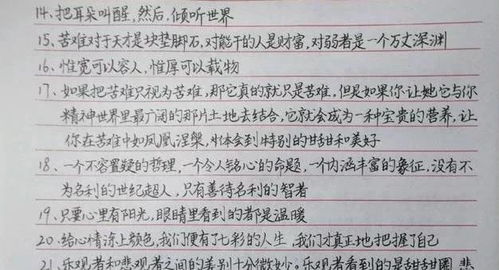 14、把耳朵叫醒,然后,倾听世界
15、苦难对于天才是块垫脚石,对能干的人是财富,对弱者是一个万丈深渊
16、惟宽可以容人,惟厚可以载物
17、如果把苦难只视为苦难,那它真的就只是苦难,但是如果你让她它与你
精神世界里最广阔的那片土地去结合,它就会成为一种宝贵的营养,让
你在苦难中如凤凰涅槃,体会到特别的甘甜和美好
18、一个不容置疑的哲理,一个令人铭心的命题,一个内涵丰富的象征,没有不
为名利的世纪超人,只有善待名利的智者
19、只要心里有阳光,眼睛里看到的都是温暖
20、给心情涂上颜色,我们便有了七彩的人生,我们才真正地把握了自己
21、乐观者和悲观者之间的差别十分微妙。乐观者看到的是甜甜圈,悲